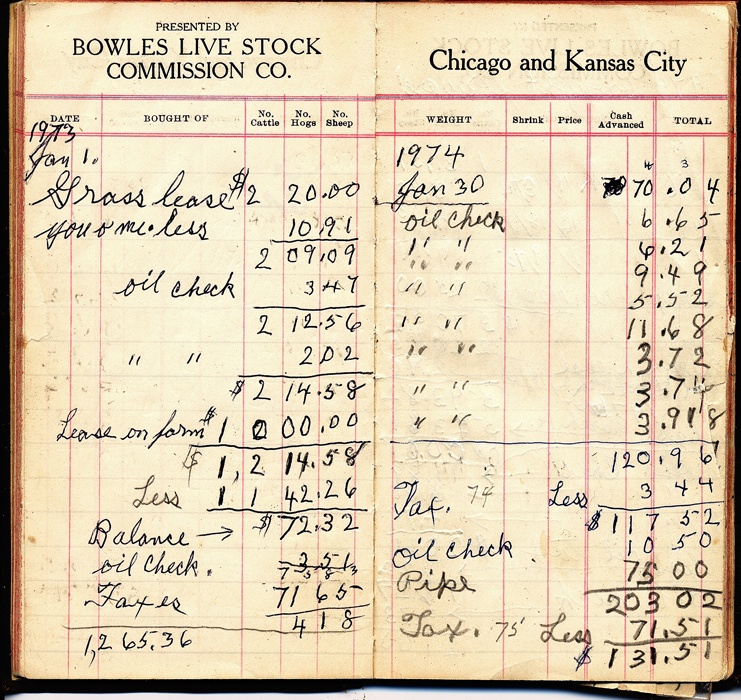 PRESENTED BY
BOWLES LIVE STOCK
COMMISSION CO.
DATE BOUGHT OF No. Cattle No. Hogs No. Sheep
1973
Jan 1.
Grass lease $2 20.00
you o me. less 10.91
2 09.09
oil check 3 47
2 12.56
" " 2 02
$2 14.58
Lease on farm $1 0 00.00
$1,2 14.58
Less 11 42.26
Balance → $72.32
oil check. 3 51
Taxes 71 65
4 18
1,265.36
Chicago and Kansas City
WEIGHT Shrink Price Cash Advanced TOTAL
1974
4 3
Jan 30 70.04
oil check 6.65
" " 6.21
" " 9.49
" " 5.52
" " 11.68
" " 3.72
" " 3.74
" " 3.98
120.96
Tax. 74 Less 3 44
$117 52
oil check. 10 50
Pipe 75 00
203 02
Tax. 75 Less 71.51
$131.51